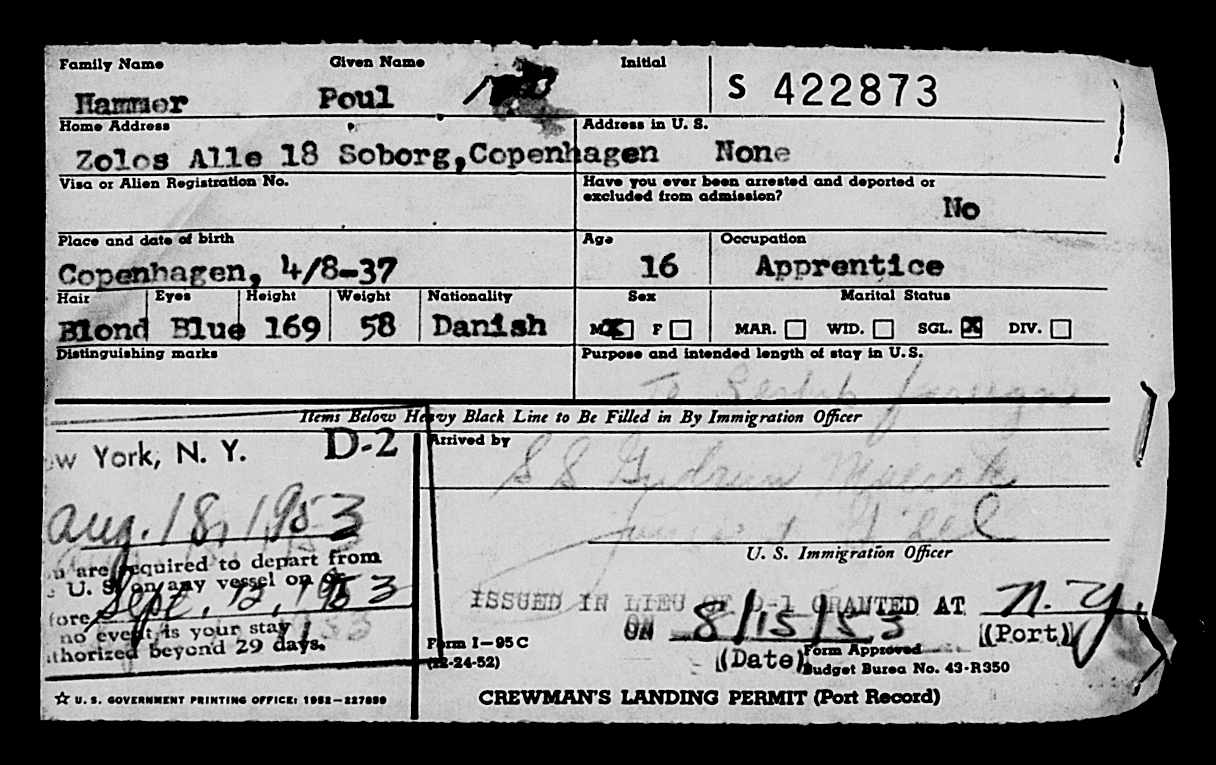 Family Name Given Name Initial
Hammer Poul S 422873
Home Address Address in U. S.
Zolos Alle 18 Soborg,Copenhagen None
Visa or Alien Registration No. Have you ever been arrested and deported or
excluded from admission?
No
Place and date of birth Age Occupation
Copenhagen, 4/8-37 16 Apprentice
Hair Eyes Height Weight Nationality Sex Marital Status
Blond Blue 169 58 Danish M X F MAR. WID. SGL. X DIV.
Distinguishing marks Purpose and intended length of stay in U.S.
To
Items Below Heavy Black Line to Be Filled in By Immigration Officer
ew York, N. Y. D-2 Arrived by
S S Gudrun Maersk
Aug. 18, 1953
U. S. Immigration Officer
u are required to depart from
U. S. on any vessel on or
fore Sept. 12, 1953
no event is your stay
thorized beyond 29 days.
ISSUED IN LIEU OF D-1 GRANTED AT N. Y.
ON 8/15/53 (Port)
(Date)
Form I-95 C Form Approved
(12-24-52) Budget Burea No. 43-R350
☆ U. S. GOVERNMENT PRINTING OFFICE: 1952-227989 CREWMAN'S LANDING PERMIT (Port Record)